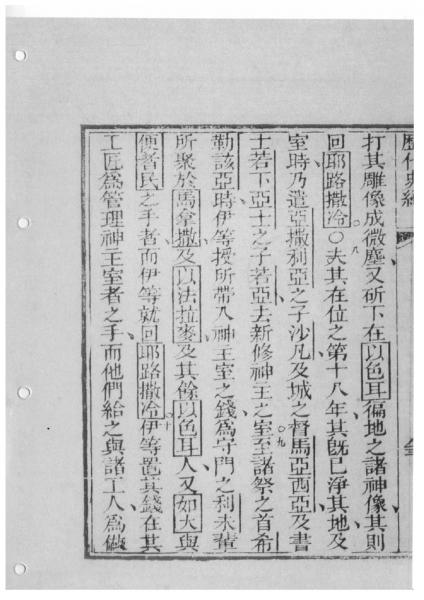 打其雕像成微塵又斫下在以色耳徧地之諸神像其則
回耶路撒冷○八夫其在位之第十八年其旣已淨其地及
室時乃遣亞撒利亞之子沙凡及城之督馬亞西亞及書
士若下亞士之子若亞去新修神王之室○九至諸祭之首希
勒該亞時伊等授所帶入神王室之錢爲守門之利未輩
所聚於馬拿撒及以法拉麥及其餘以色耳人又如大與
便者民之手者而伊等就回耶路撒冷○十伊等置其錢在其
工匠爲管理神王室者之手而他們給之與諸工人爲做